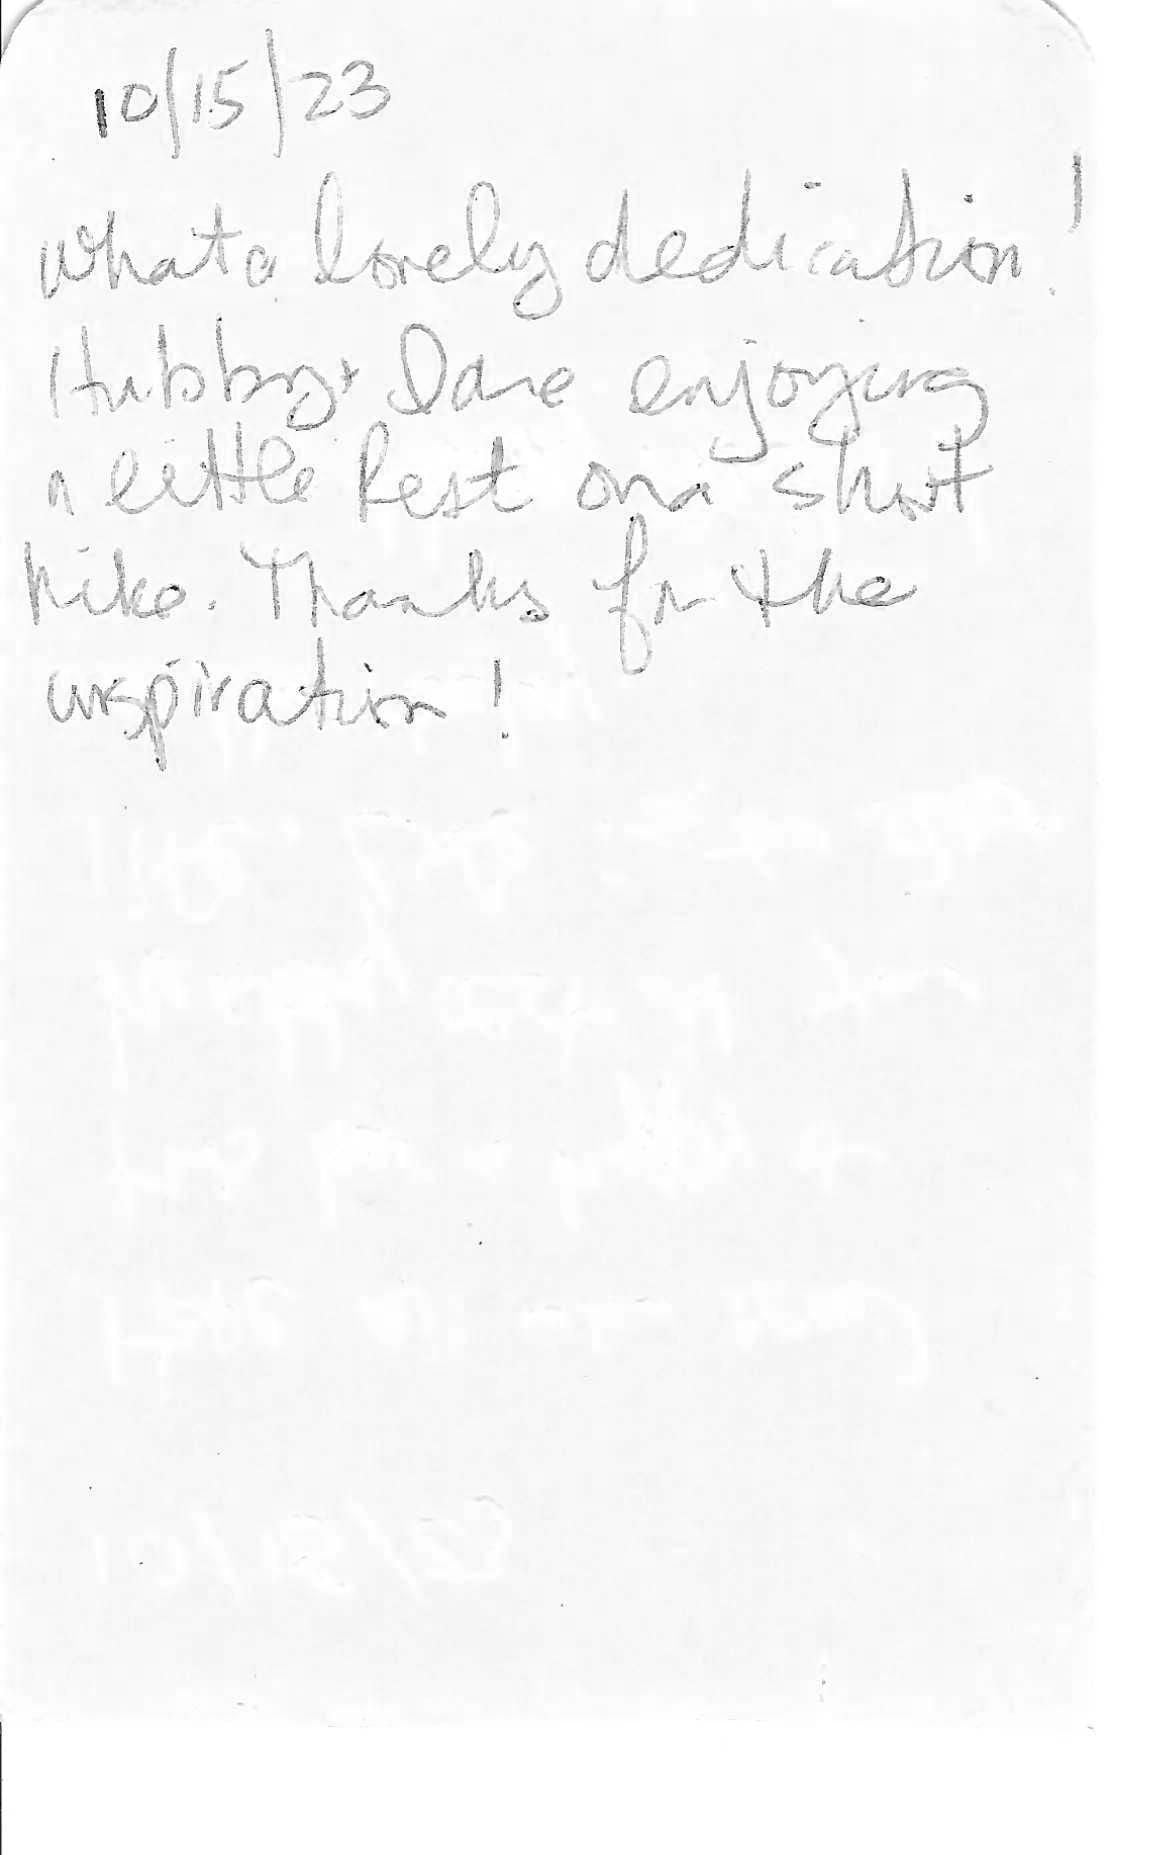 10/15/23
What a lovely dedication!
Hubby + I are enjoying
a little Rest on a short
hike. Thanks for the
inspiration!